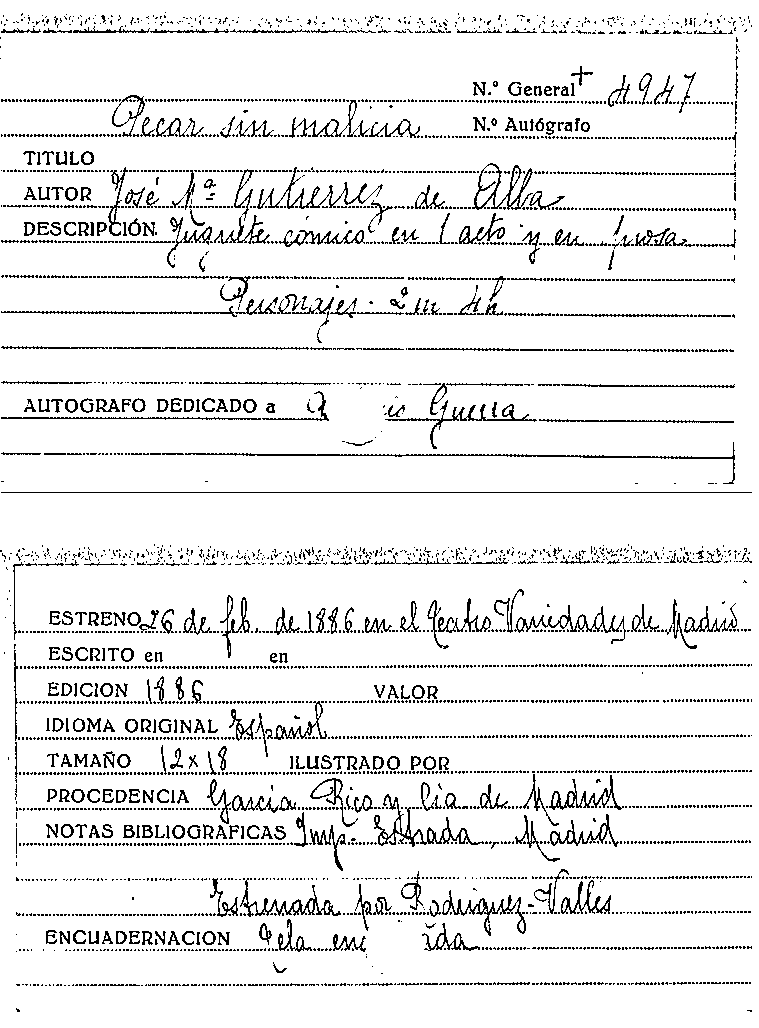 N.º General + 4947
Pecar sin malicia N.º Autógrafo
TITULO
AUTOR José Mª Gutierrez de Alba
DESCRIPCIÓN. Juguete cómico en 1 acto y en prosa
Personajes - 2 m 4h
AUTOGRAFO DEDICADO a Guerra
ESTRENO 26 de feb. de 1886 en el Teatro Variedades de Madrid
ESCRITO en en
EDICION 1886 VALOR
IDIOMA ORIGINAL Español
TAMAÑO 12x18 ILUSTRADO POR
PROCEDENCIA Garcia Rico y Cía de Madrid
NOTAS BIBLIOGRAFICAS Imp. Estrada, Madrid
Estrenada por Rodriguez-Valles
ENCUADERNACION Tela